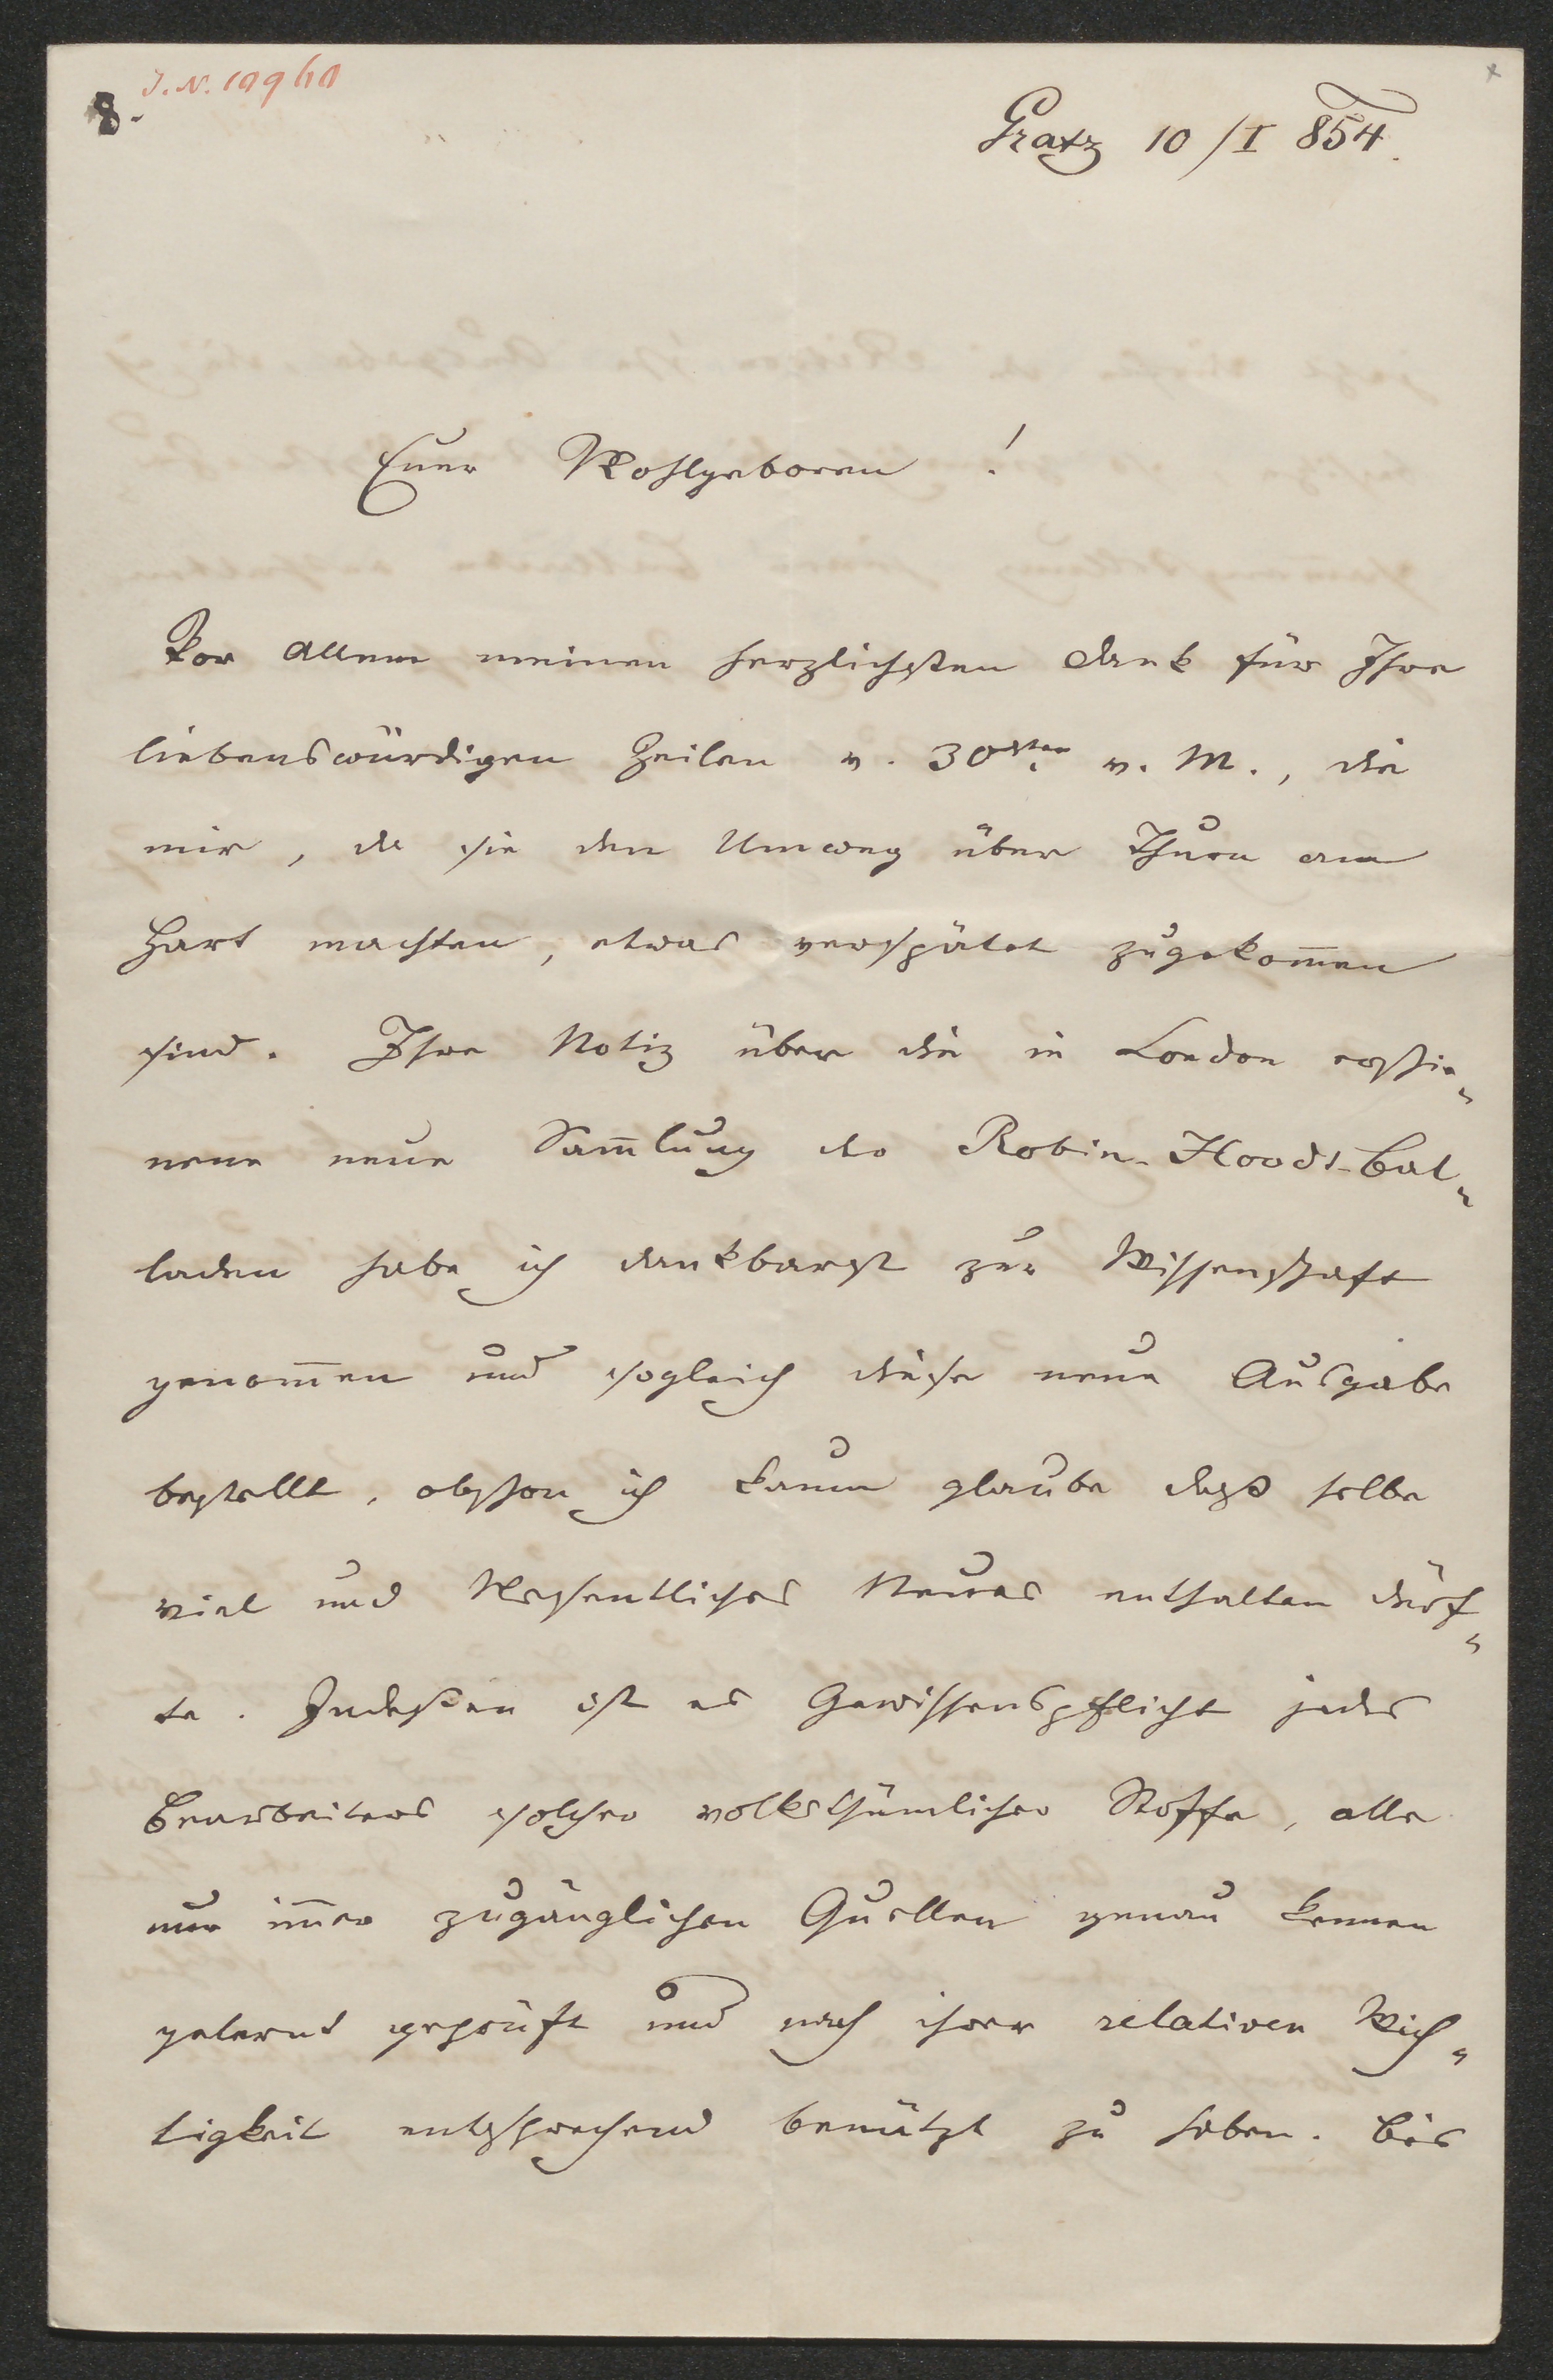 J. N. 10960
8.
Gratz 10/I 854.
Euer Wohlgeboren!
Vor Allem meinen herzlichsten Dank für Ihre
liebenswürdigen Zeilen v. 30sten v. M., die
mir, da sie den Umweg über Thurn am
Hart machten, etwas verspätet zugekom̄en
sind. Ihre Notiz über die in London erschie„
nene neue Sam̄lung der Robin-Hoods-Bal„
laden habe ich dankbarst zur Wissenschaft
genom̄en und sogleich diese neue Ausgabe
bestellt, obschon ich kaum glaube daß selbe
viel und Wesentliches Neues enthalten dürf„
te. Indeßen ist es Gewissenspflicht jedes
Bearbeiters solcher volksthümlicher Stoffe, alle
nur im̄er zugänglichen Quellen genau kennen
gelernt geprüft und nach ihrer relativen Wich„
tigkeit entsprechend benützt zu haben. Bis